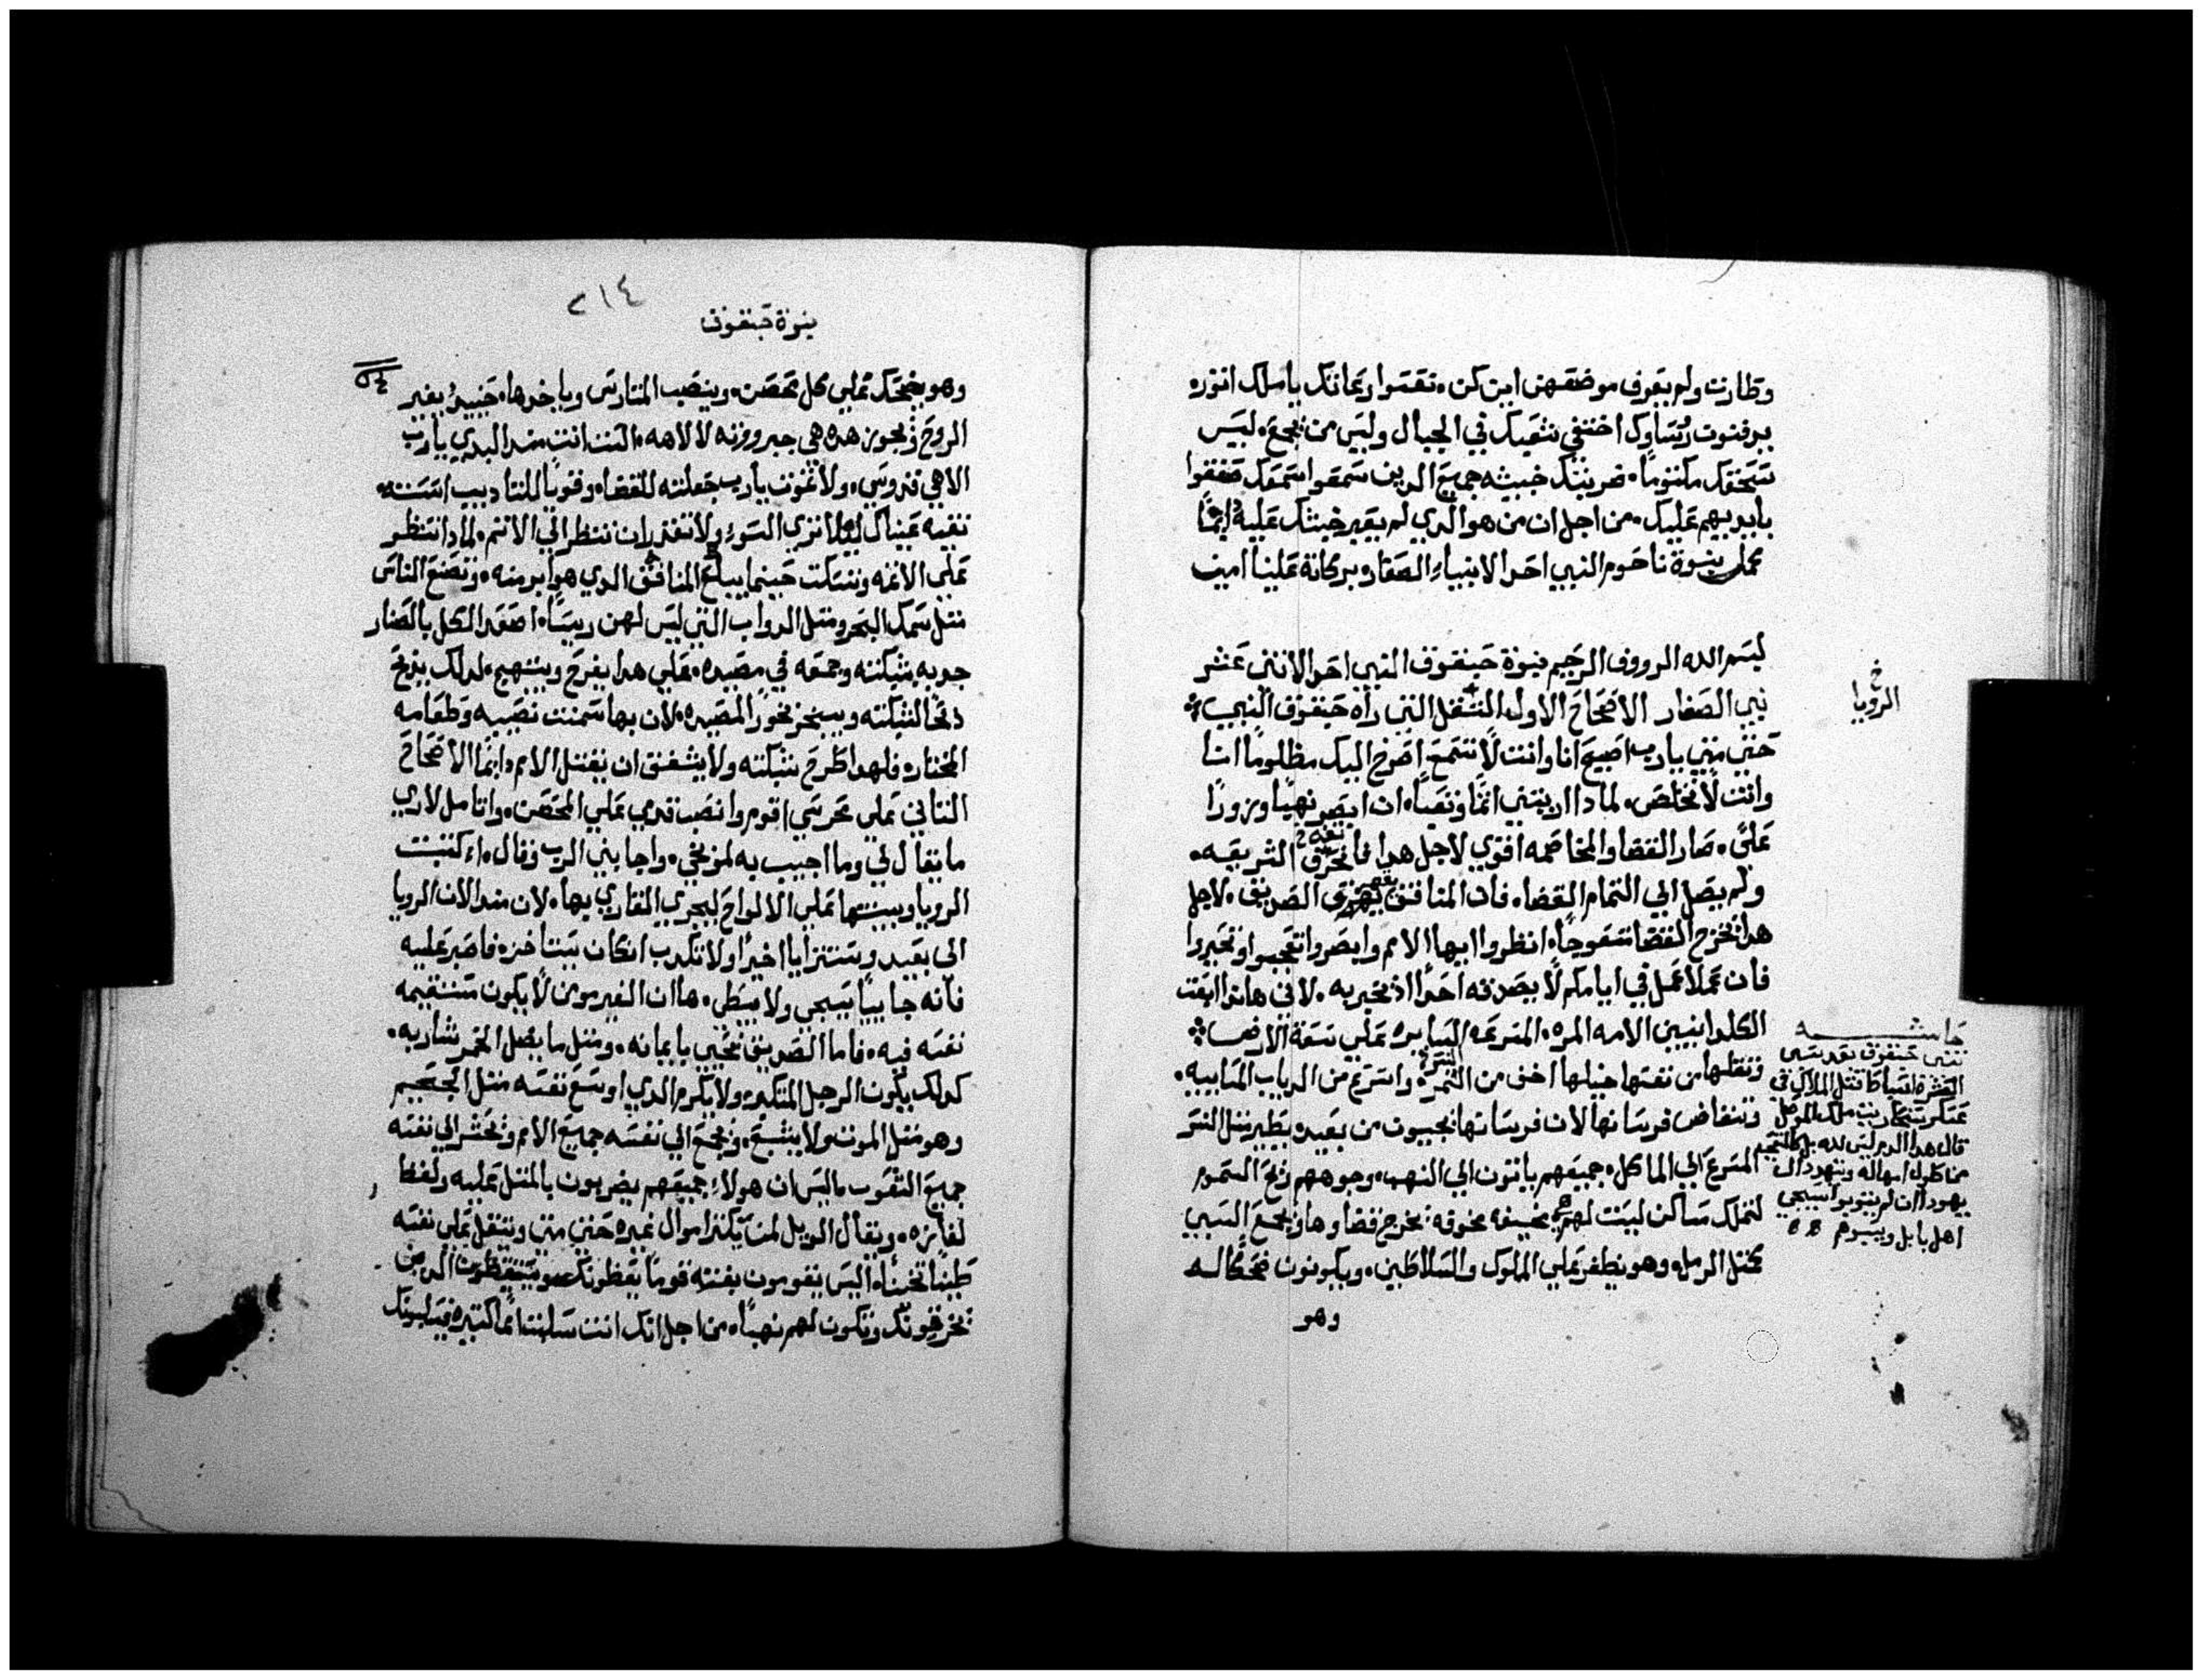 وطارت ولم يعرف موضعهن اين كن. نقسوا رعاتك يا ملك اتوره
يرقنوت رؤساوك اختفي شعبك في الجبال وليس من يجمع. ليس
سحقك مكتوما. ضربتك خبيثه جميع الدين سمعوا سمعك صفقوا
بايديهم عليك. من اجل ان من هو الدي لم يعبر خبثك عليه دايمًا
كمل بنوة ناحوم النبي احد الانبياء الصغار بركاته علينا امين
بسم الله الرووف الرحيم نبوة حبقوق النبي احد الاثني عشر
نبي الصغار الاصحاح الاول الثقل التي راه حبقوق النبي
حتي متي يارب اصيح انا وانت لا تسمع اصرخ اليك مظلومًا انا
وانت لا تخلص. لمادا اريتني اثمًا وتعبًا. ان ابصر نهبًا وزورًا
عليَّ. صار القضا والمخاصمه اقوي لاجل هدا تمزق الشريعه.
ولم يصل الي التمام القضا. فان المنافق يهزي الصديق. لاجل
هدا يخرج القضا متعوجًا. انظروا ايها الامم وابصروا تعجبوا وتحيروا
فان عملاً عمل في ايامكم لا يصدقه احدًا اذ يخبر به. لاني هاندا ابعت
الكلدانيين الامه المره. المسرعه السايره علي سعة الارض
وتقلها من نفسها خيلها اخف من النمره واسرع من الدياب المساييه.
وتنفاض فرسانها لان فرسانها يجييون من بعيد. يطير مثل النسر
المسرع الي الماكل. جميعهم ياتون الي النهب. وجوههم ريح السموم
لتملك مساكن ليست لهم مخيفه مخوفه: يخرج قضاوها ويجمع السبي
كمتل الرمل. وهو يظفر علي الملوك والسلاطين. ويكونون ضحكا له
وهو
خ
الرويا
حاشيه
تنبي حبقوق بعد سبي
العشرة اسباط قتل الملاك في
عسكر سنحاريب ملك الموصل
اهل بابل ويسبوهم
٢١٤
نبوة حبقوق
وهو يضحك علي كل محصن. وينصب المتارس وياخدها. حينيدٍ يغير
الروح ويجوز. هده هي جبروزته لالاهه. الست انت مند البدي يارب
الاهي قدوسي. ولا نموت يارب جعلته للقضا. وقويًا للتاديب اسسته
نقيه عيناك ليلا تري السوء ولا تقدر ان تنظر الي الاتم. لمادا تنظر
علي الاتمه وتسكت حينما يبلع المنافق الدي هو ابر منه. وتصنع الناس
متل سمك البحر ومتل الدواب التي ليس لهن رييسًا. اصعد الكل بالصنار
جدبه بشبكته وجمعه في مصيده. علي هدا يفرح ويبتهج. لدلك يدبح
دبحا لشبكته ويبخر بخورًا لمصيده. لان بها سمنت نصيبه وطعامه
المختاره فلهدا طرح شبكته ولا يشفق ان يقتل الامم دايمًا الاصحاح
التاني علي محرسي اقوم وانصب قدمي علي المحصن. واتامل لاري
ما يقال لي وما اجيب به لموبخي. واجابني الرب وقال. اكتب
الرويا وبينها علي الالواح ليجري القاري بها. لان مند الان الرويا
الي بعيد وستترايا اخيرًا ولا تكدب ان كان يتاخره فاصبر عليه
فانه جاييًا يسجي ولا يبطي. ها ان الغير مومن لا يكون مستقيمه
نفسه فيه. فاما الصديق يحيي بايمانه. ومتل ما يضل الخمر شاربه.
كدلك يكون الرجل المتكبر. ولا يكرم الدي اوسع نفسه متل الجحيم
وهو متل الموت ولا يشبع. ويجمع الي نفسه جميع الامم ويحشر الي نفسه
جميع الشعوب. اليس ان هولاء جميعهم يضربون بالمتل عليه ولفظ
لغايزه. ويقال الويل لمن يكتر اموال غيره حتي متي ويتقل علي نفسه
طينًا تخينًا. اليس يقومون بغتته قومًا يعظونك ويستيقظون الدين
يخرقونك وتكون لهم نهبًا. من اجل انك انت سلبت امما كتيره فيسلبونك